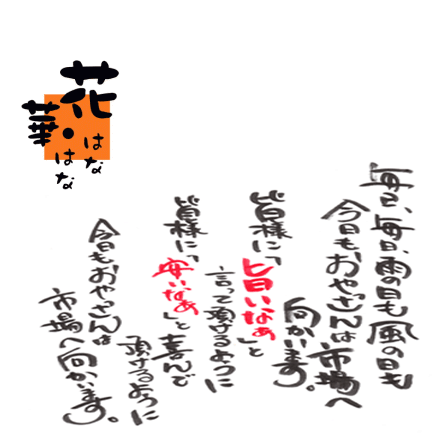 花・華
はな
はな
毎日、毎日、雨の日も風の日も
今日もおやじさんは市場へ
向かいます。
皆様に「旨いなぁ」と
言って頂けるように
皆様に「安いなぁ」と喜んで
頂けるように
今日もおやじさんは
市場へ向かいます。